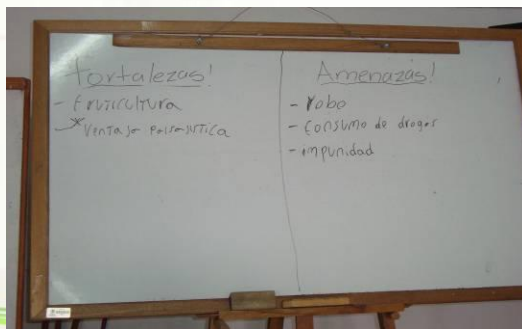 fortalezas!
- fruticultura
- Ventaja paisajistica
Amenazas!
- robo
- Consumo de drogas
- impunidad